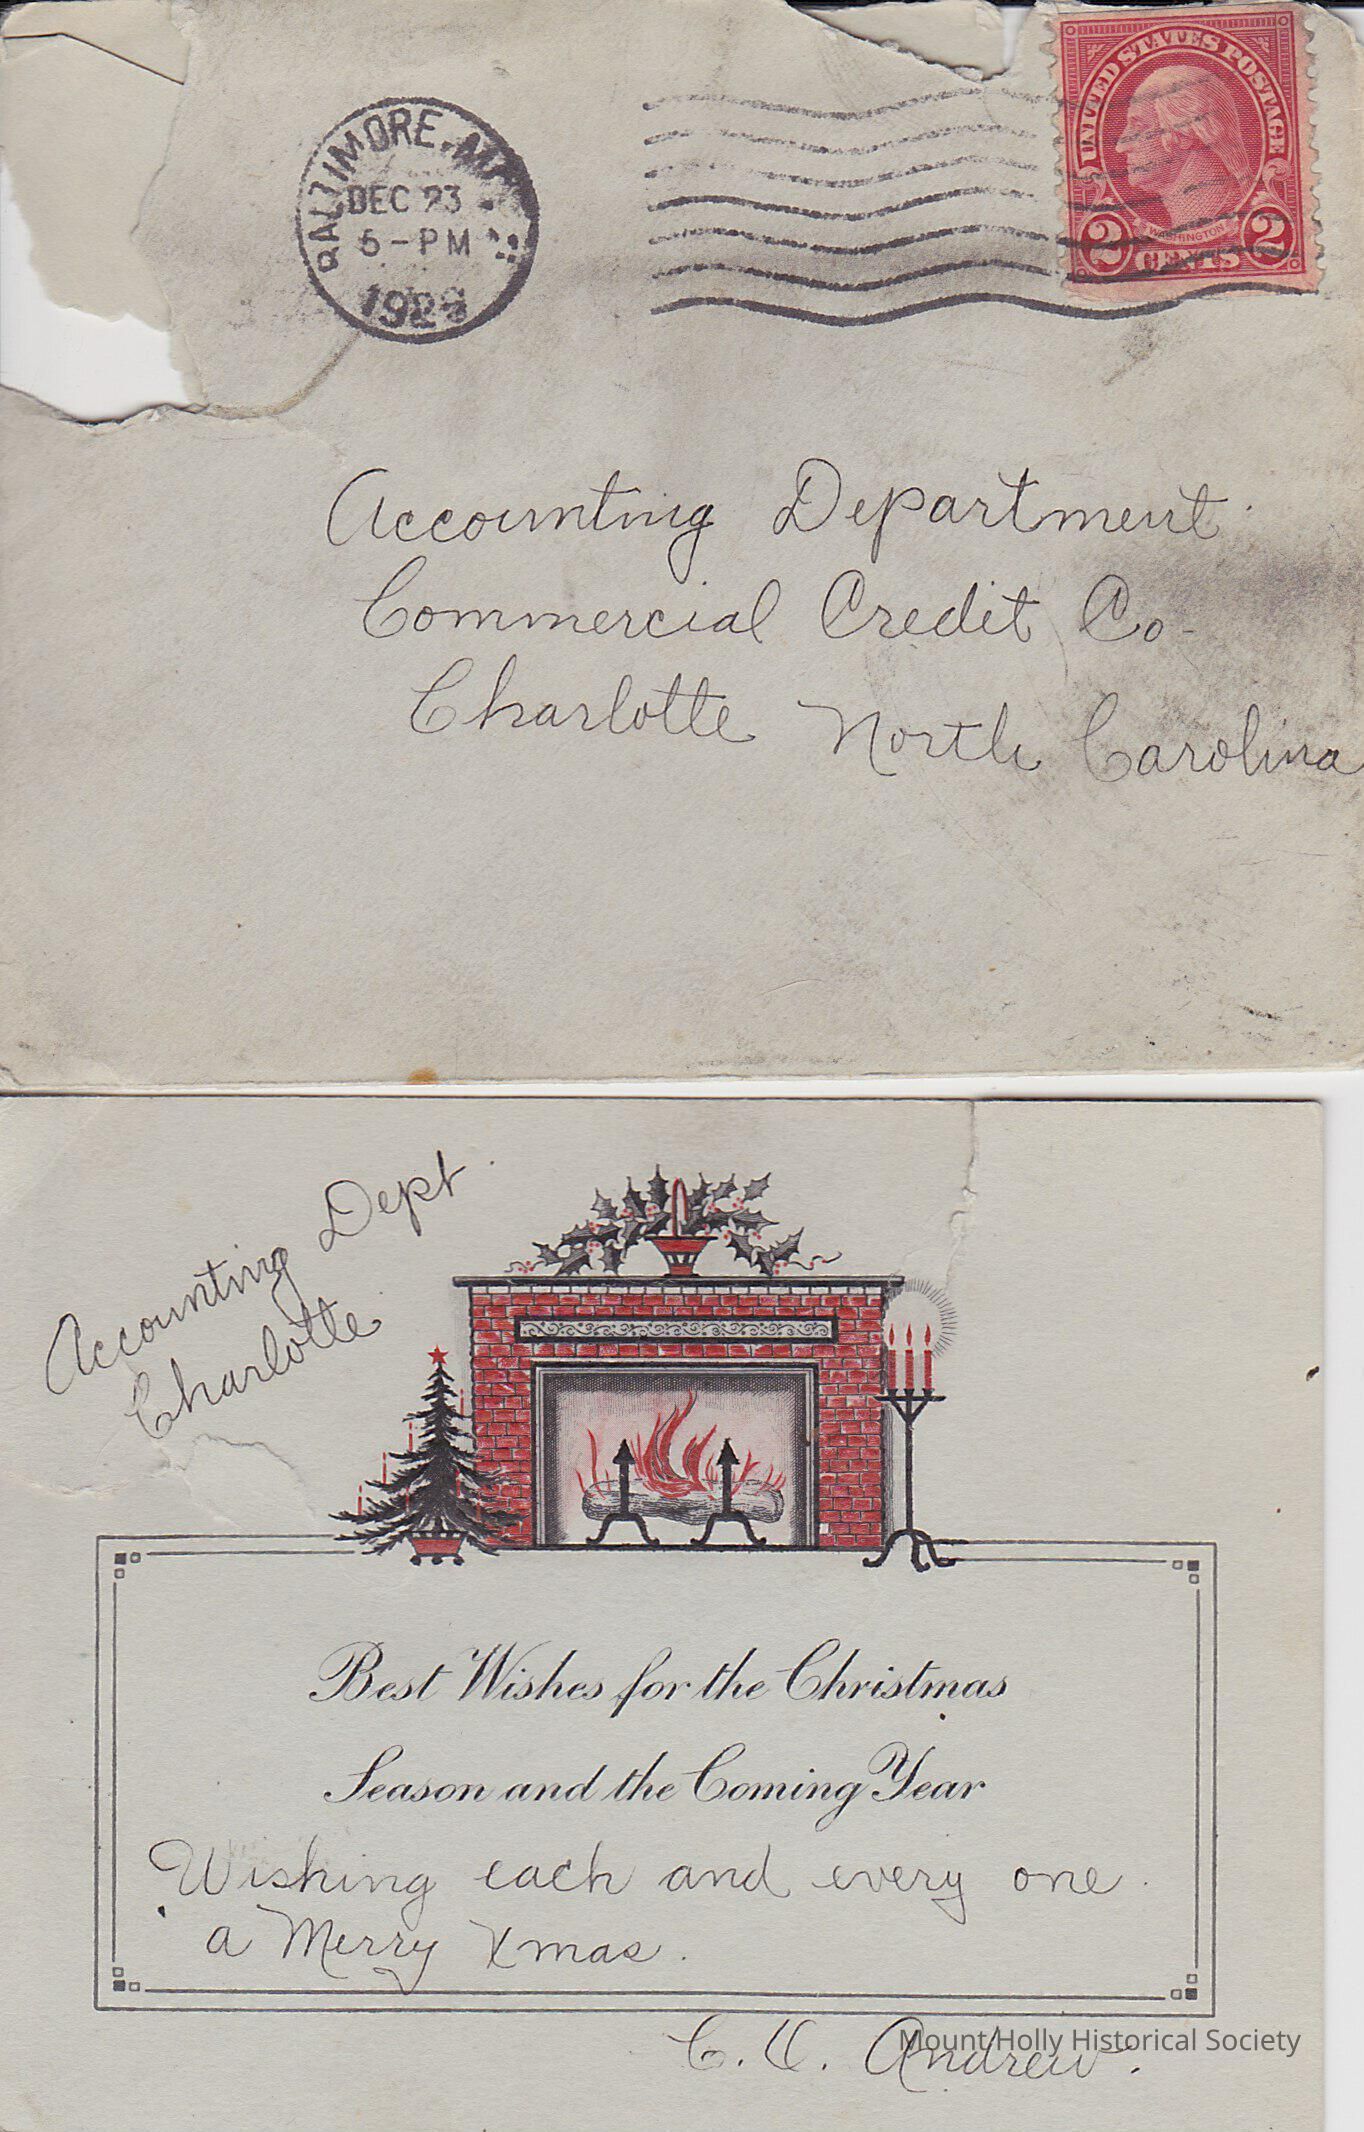 BALTIMORE, MD.
DEC 23
5 - PM
UNITED STATES POSTAGE
WASHINGTON
2 CENTS 2
Accounting Department
Commercial Credit Co-
Charlotte North Carolina
Accounting Dept.
Charlotte
Best Wishes for the Christmas
Season and the Coming Year
Wishing each and every one.
a Merry Xmas.
C. Andrew.
Mount Holly Historical Society